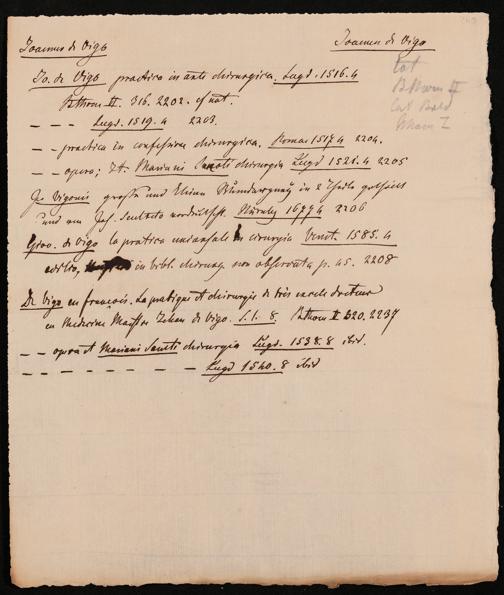 Joannes de Vigo Joannes de Vigo
Jo. de Vigo practica in arte chirurgica. Lugd. 1516. 4
B. Thom II. 316. 2202. cf nat.
– – – Lugd. 1519. 4 2203.
– – practica in chirurgica. Romae 1517 4 2204.
– – opera; It. Mariani Sancti chirurgia Lugd 1521. 4 2205
Jo. Vigonis grosse und kleine Wundarzney in 2 Theile
und von Joh. Nürnbg 1677 4 2206
Giov. de Vigo la pratica universale in cirurgia Venet. 1585. 4
editio, in bibl. chirurg. non observata p. 45. 2208
De Vigo en françois. La pratique et chirurgie de très excell docteur
en Medecine Maistre Jehan de Vigo. s. l. 8 B. Thom II 320. 2237
– – opera et Mariani Sancti chirurgia Lugd. 1538. 8 ibid.
– – – – – – – – Lugd 1540. 8 ibid